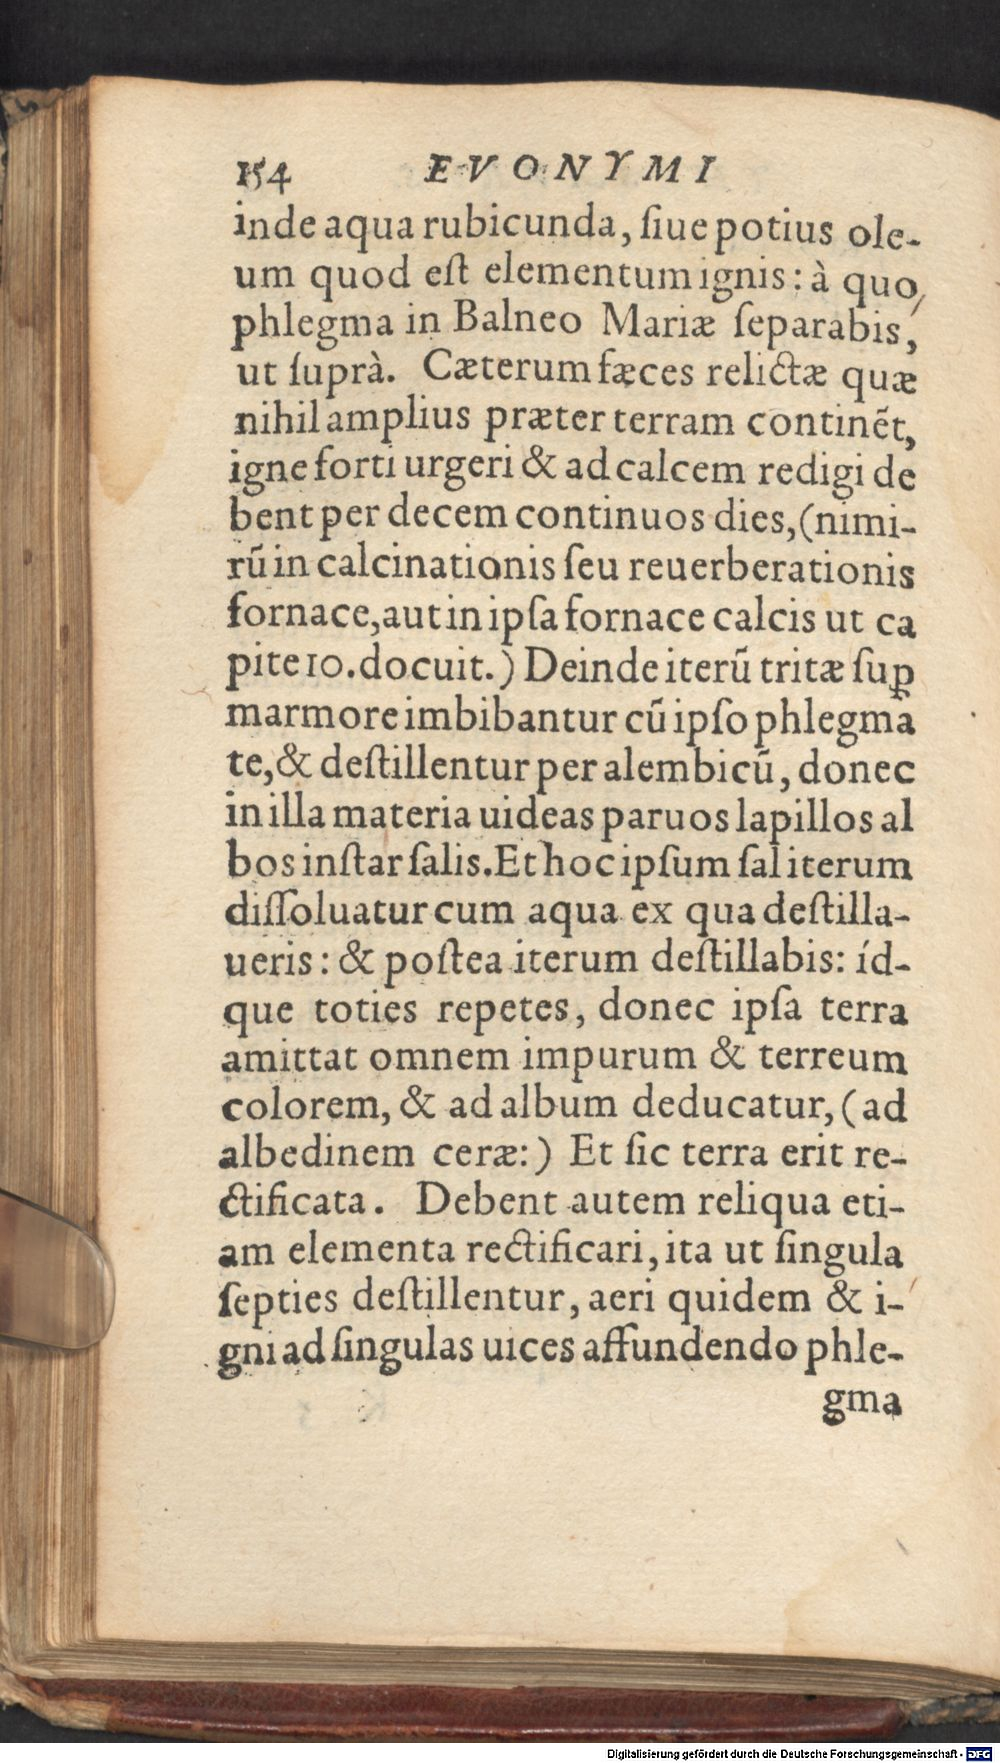 154 EVONYMI
inde aqua rubicunda, ſiue potius ole-
um quod eſt elementum ignis: à quo
phlegma in Balneo Mariæ ſeparabis,
ut ſuprà. Cæterum fæces relictæ quæ
nihil amplius præter terram continẽt,
igne forti urgeri & ad calcem redigi de
bent per decem continuos dies, (nimi-
rũ in calcinationis ſeu reuerberationis
fornace, aut in ipſa fornace calcis ut ca
pite 10. docuit.) Deinde iterũ tritæ ſuꝑ
marmore imbibantur cũ ipſo phlegma
te, & deſtillentur per alembicũ, donec
in illa materia uideas paruos lapillos al
bos inſtar ſalis. Et hoc ipſum ſal iterum
diſſoluatur cum aqua ex qua deſtilla-
ueris: & poſtea iterum deſtillabis: íd-
que toties repetes, donec ipſa terra
amittat omnem impurum & terreum
colorem, & ad album deducatur, (ad
albedinem ceræ:) Et ſic terra erit re-
ctificata. Debent autem reliqua eti-
am elementa rectificari, ita ut ſingula
ſepties deſtillentur, aeri quidem & i-
gni ad ſingulas uices affundendo phle-
gma
Digitalisierung gefördert durch die Deutsche Forschungsgemeinschaft - DFG